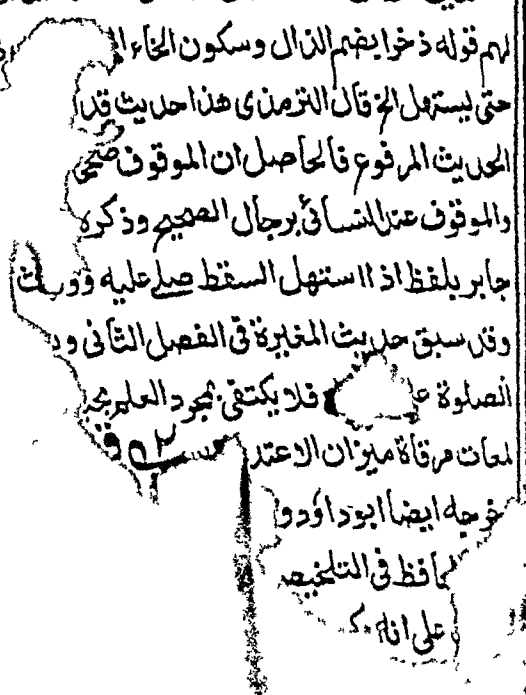 لهم قوله ذخرا بضم الذال وسكون الخاء
حتى يستهل الخ قال الترمذى هذا حديث قد
الحديث المرفوع فالحاصل ان الموقوف
والموقوف عند النسائى برجال الصحيح وذكره
جابر بلفظ اذا استهل السقط صلے عليه وورث
وقد سبق حديث المغيرة فى الفصل الثانى
الصلوة فلا يكتفى بمجرد العلم
لمعات مرقاة ميزان الاعتد
ايضا ابو داؤد و
فى التلخيص
على انه